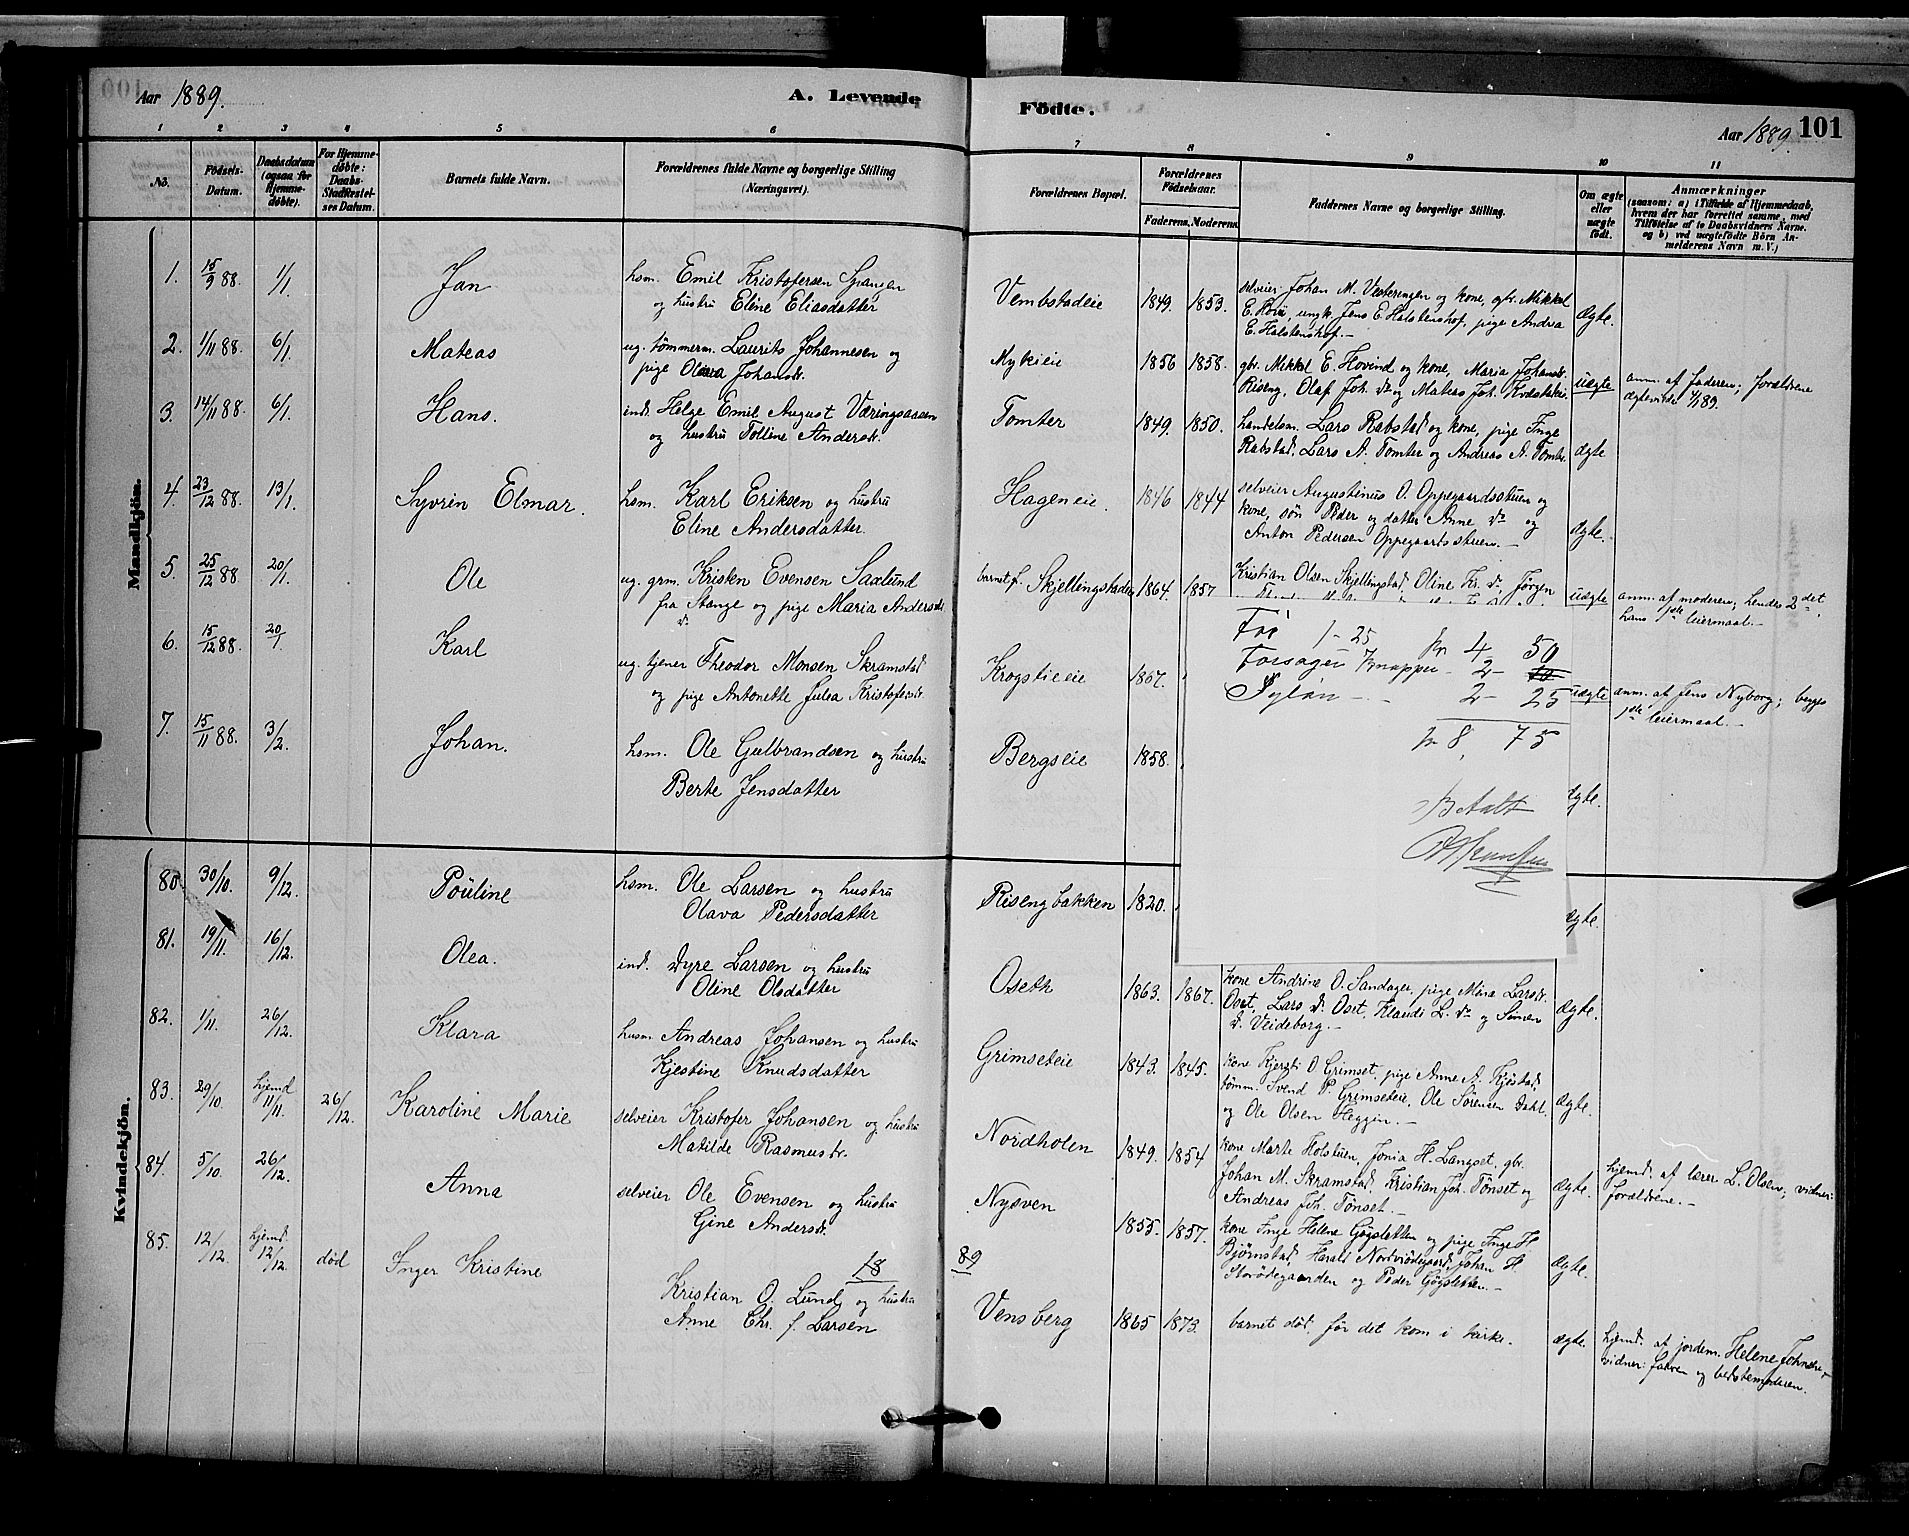 Aar 1889.
A. Levende
Födte.
Aar 1889.
101
1 2 3 4 5 6 7 8 9 10 11
No.
Födsels-
Datum.
Daabsdatum
(ogsaa for
Hjemme-
döbte).
For Hjemme-
døbte:
Daabs-
Stadfæstel-
ses Datum.
Barnets fulde Navn.
Forældrenes fulde Navne og borgerlige Stilling
(Næringsvei).
Forældrenes Bopæl.
Forældrenes
Födselsaar.
Faderens. Moderens.
Faddernes Navne og borgerlige Stilling.
Om ægte
eller
uægte
født.
Anmærkninger
(saasom: a) i Tilfælde af Hjemmedaab,
hvem der har forrettet samme, med
Tilföielse af to Daabsvidners Navne.
og b) ved uægtefödte Börn An-
melderens Navn m. V.)
Mandkjön.
1. 15/9 88. 1/1. Jan
hsm. Emil Kristofersen Spangen
og hustru Eline Eliasdatter
Vembstadeie 1849. 1853.
selveier Johan M. Vesterengen og kone, gbr. Mikkel
E. Hovi, ungk. Jens E. Halstenshof, pige Andrea
E. Halstenshof.—
Ægte.
2. 1/11 88. 6/1. Mateas
ug. tømmerm. Laurits Johannesen og
pige Olava Johansdr.
Mykieie 1856 1858.
gbr. Mikkel E. Hovind og kone, Maria Johansdr.
Riseng, Olaf Joh. do og Mateas Joh.
uægte
anm. af Faderen; forældrene
ægteviede 6/1 89.
3. 14/11 88. 6/1. Hans.
ind. Helge Emil August Væringsaasen
og hustru Tolline Andersdr.
Tomter 1849. 1850.
handelsm. Lars Rabstad og kone, pige Inge
Rabstad, Lars A. Tomter og Andreas A. Tomter
ægte
4. 23/12 88. 13/1. Syvrin Elmar.
hsm. Karl Eriksen og hustru
Eline Andersdatter.
Hageneie. 1846 1844
selveier Augustinus O. Oppegaardsstuen og
kone, søn Peder og datter Anne do og
Anton Pedersen Oppegaardsstuen.—
ægte.
5. 25/12 88. 20/1. Ole
ug. grm. Kristen Evensen Saxlund
fra Stange og pige Maria Andersdr.
do
barnet f. Skjellingstadeie 1864. 1857
Kristian Olsen Skjellingstad, Oline Kr. do Jørgen
uægte
anm. af moderen; hendes 2det
hans 1ste leiermaal.—
6. 15/12 88. 20/1 Karl
ug. tjener Theodor Monsen Skramstad
og pige Antonette Julia Kristofersdr.
Krogstieie 1867.
uægte
anm. af Jens Nyborg; begges
1ste leiermaal.—
7. 15/11 88. 3/2. Johan.
hsm. Ole Gulbrandsen og hustru
Berte Jensdatter
Bergseie 1858.
ægte.
1-25 kr 4- 50
Knapper - 2- 10
Syløn — 2- 25
kr 8, 75
Betalt
Kvindekjön.
80 30/10. 9/12. Pouline
hsm. Ole Larsen og hustru
Olava Pedersdatter
Risengbakken 1820.
ægte.
81. 19/11. 16/12. Olea.
ind. Dyre Larsen og hustru
Oline Olsdatter
Oseth 1863. 1867.
kone Andrine O. Sandager, pige Mina Larsdr.
Oset, Lars D. Oset, Klaudi L. do og Simen
D. Veideborg.—
ægte.
82. 1/11. 26/12. Klara
husm. Andreas Johansen og hustru
Kjestine Knudsdatter
Grimseteie 1843. 1845.
kone Kjersti O. Grimset, pige Anne A. Kjøstad,
tømm. Svend P. Grimseteie, Ole Sørensen Dahl
og Ole Olsen Heggin.—
ægte.
83. 29/10. hjemd. 11/11. 26/12. Karoline Marie
selveier Kristofer Johansen og hustru
Matilde Rasmusdr.
Nordholen 1849. 1854
kone Marte Holstuen, Jonia H. Langset, gbr.
Johan M. Skramstad, Kristian Joh. Tønset og
Andreas Joh. Tønset.—
ægte.
hjemd. af lærer L. Olsen; vidner:
forældrene.—
84. 5/10. 26/12. Anna
selveier Ole Evensen og hustru
Gine Andersdr.
Nysven 1855. 1857.
kone Inge Helene Gøgsletten og pige Inge H.
Bjørnstad, Harald Johan H.
Storødegaarden og Peder Gøgsletten.—
ægte.
18 89
85. 12/12. hjemd. 12/12. død Inger Kristine
Kristian O. Lund og hustru
Anne Chr. f. Larsen
Vensberg 1865 1873.
barnet död, før det kom i kirke.
ægte.
hjemd. af jordem. Helene
vidner: faren og bedstemoderen.